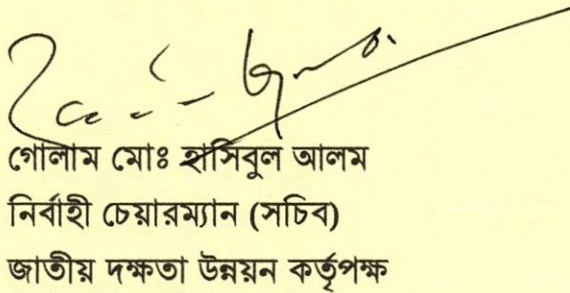 গোলাম মোঃ হাসিবুল আলম
নির্বাহী চেয়ারম্যান (সচিব)
জাতীয় দক্ষতা উন্নয়ন কর্তৃপক্ষ